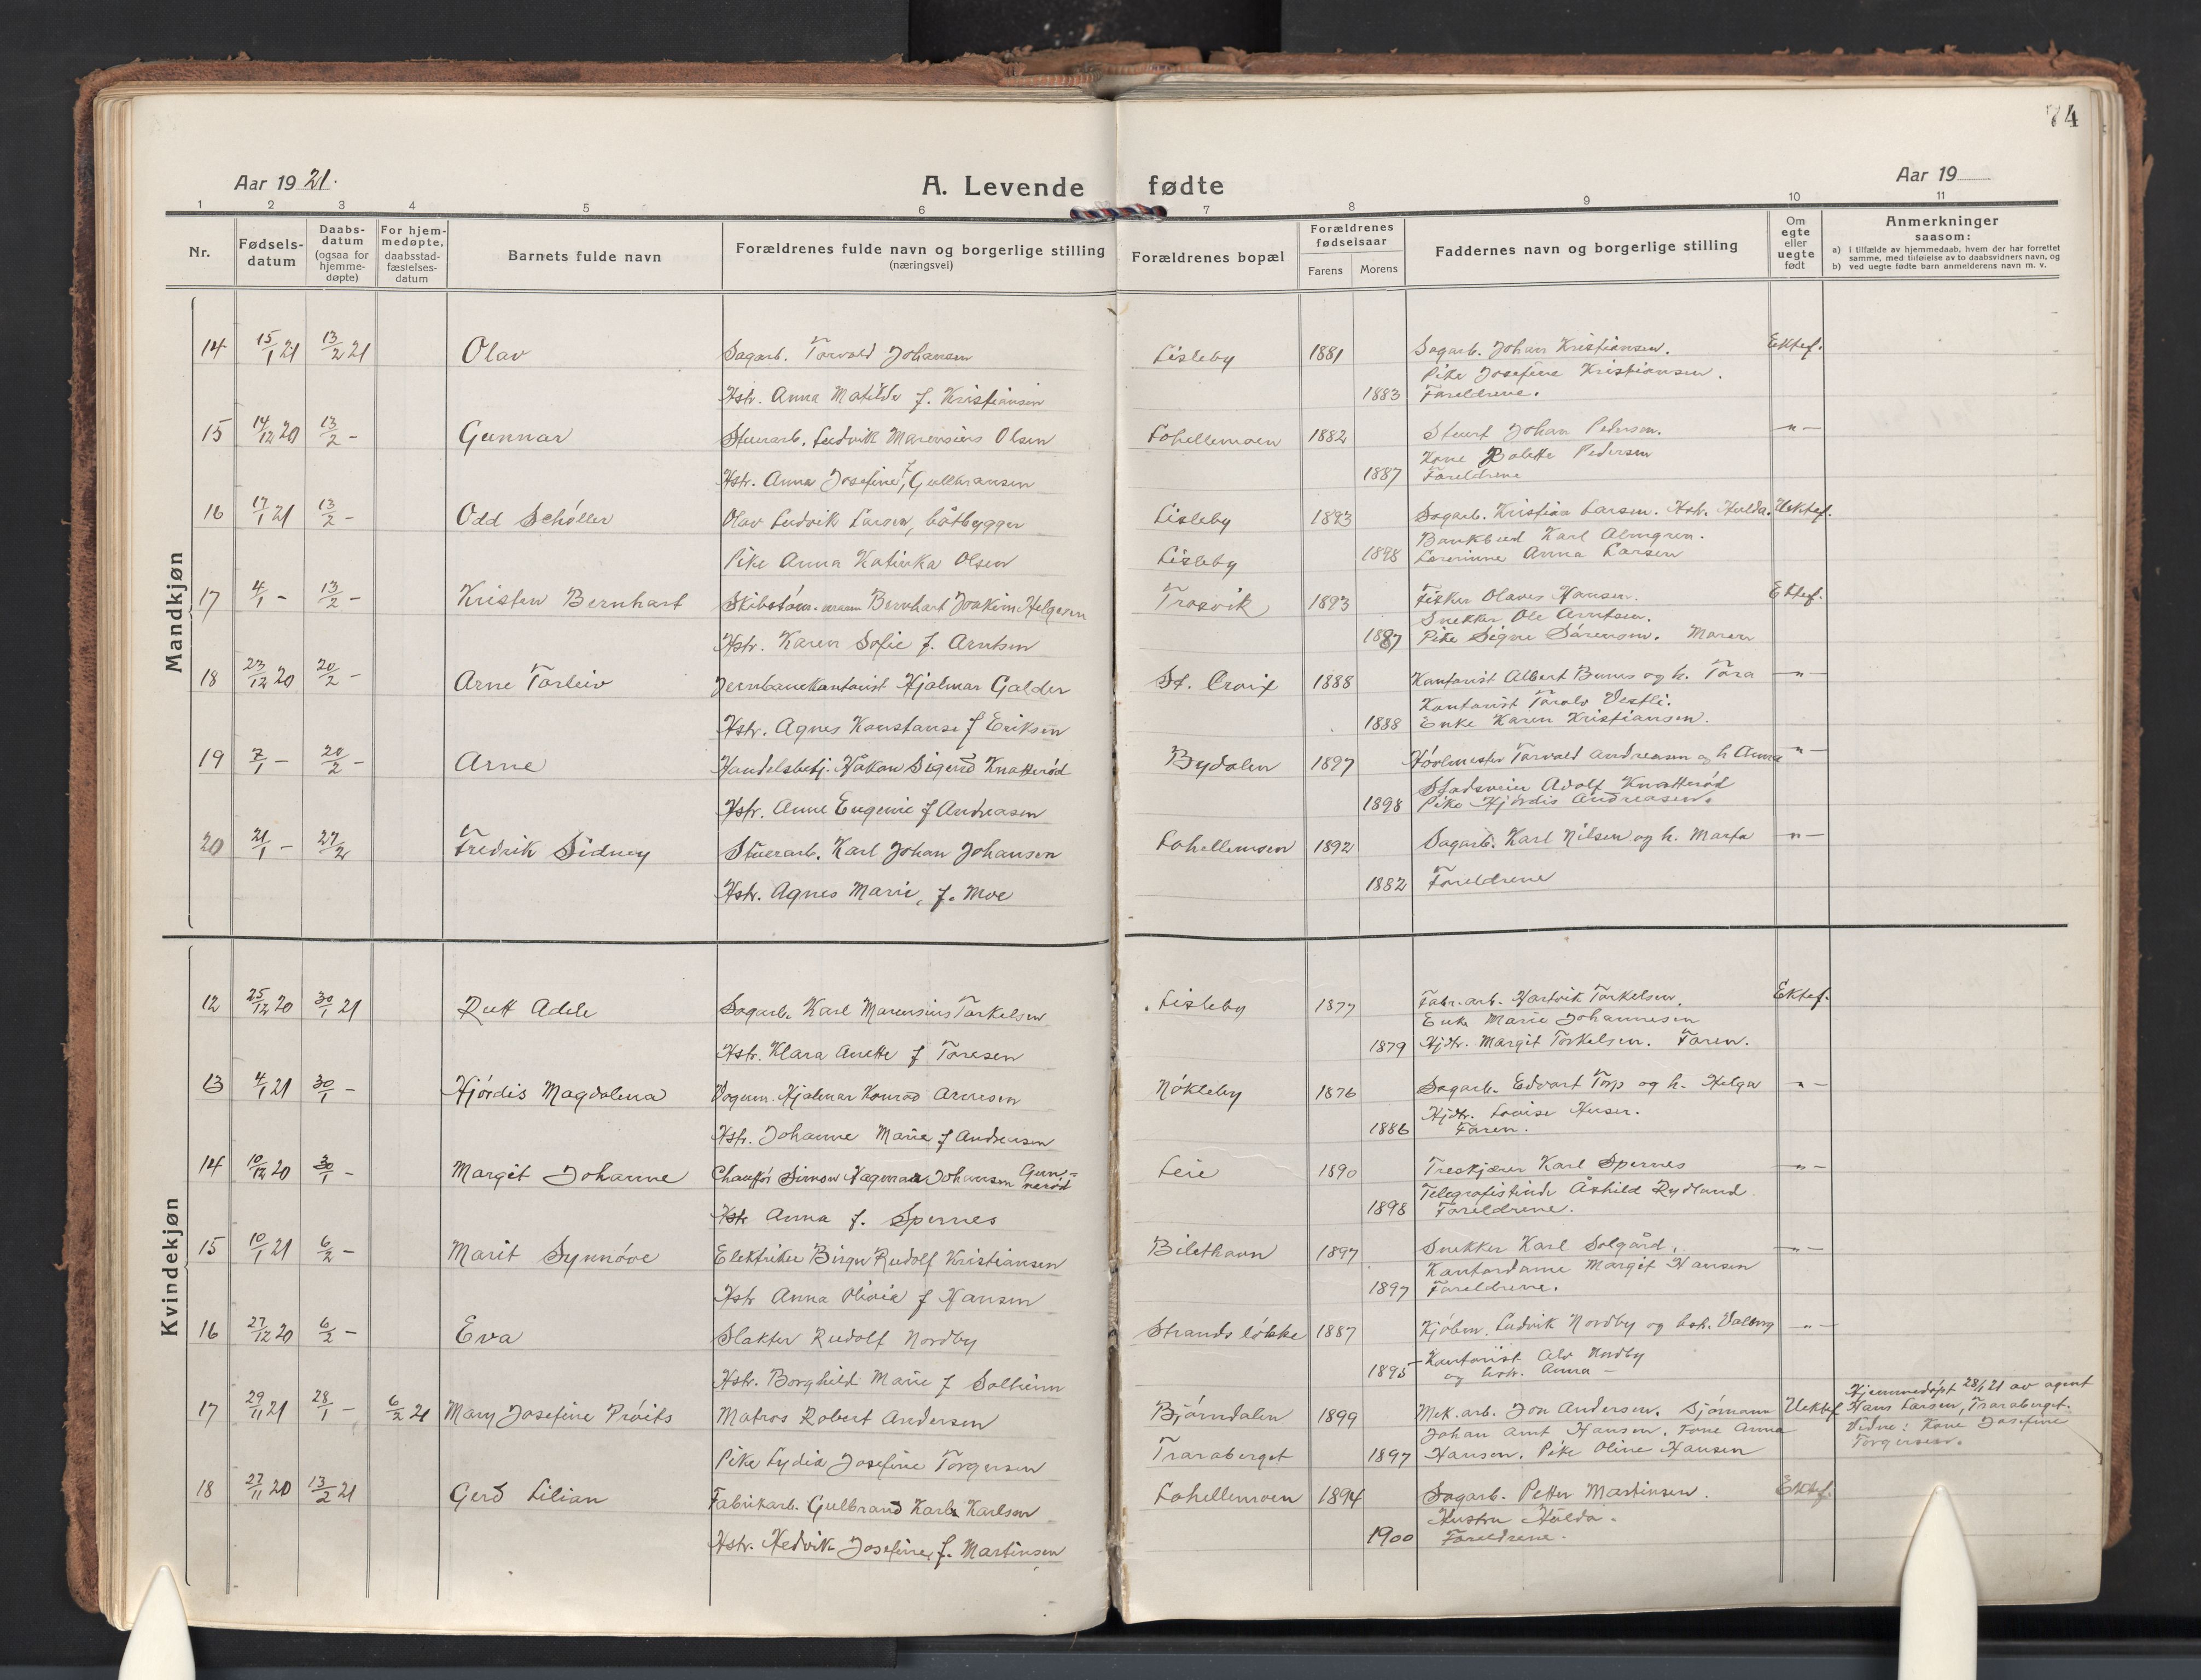 74
Aar 1921.
A. Levende fødte
Aar 19
1 2 3 4 5 6 7 8 9 10 11
Nr.
Fødsels-
datum
Daabs-
datum
(ogsaa for
hjemme-
døpte)
For hjem-
medøpte,
daabsstad-
fæstelses-
datum
Barnets fulde navn
Forældrenes fulde navn og borgerlige stilling
(næringsvei)
Forældrenes bopæl
Forældrenes
fødselsaar
Farens Morens
Faddernes navn og borgerlige stilling
Om
egte
eller
uegte
født
Anmerkninger
saasom:
a) i tilfælde av hjemmedaab, hvem der har forrettet
samme, med tilføielse av to daabsvidners navn, og
b) ved uegte fødte barn anmelderens navn m. v.
Mandkjøn
14 15/1 21 13/2 21 Olav Sagarb. Torvald Johansen Lisleby 1881 Sagarb. Johan Kristiansen. Ektef.
Pike Josefine Kristiansen.
Hstr. Anna Matilde f. Kristiansen 1883 Foreldrene.
15 14/12 20 13/2 - Gunnar Stuerarb. Ludvik Marensius Olsen Lohellemoen 1882 Stuert Johan Pedersen. -"-
Kone Bolette Pedersen
Hstr. Anna Josefine, f. Gulbransen 1887 Foreldrene
16 17/1 21 13/2 - Odd Schøller Olav Ludvik Larsen, båtbygger Lisleby 1893 Sagarb. Kristian Larsen. Hstr. Hulda. Uektef.
Bankbud Karl Almgren.
Pike Anna Katinka Olsen Lisleby 1898 Lærerinne Anna Larsen
17 4/1 - 13/2 - Kristen Bernhart Bernhart Joakim Helgesen Trosvik 1893 Fisker Olaves Hansen. Ektef.
Snekker Ole Arntsen.
Hstr. Karen Sofie f. Arntsen 1887 Pike Signe Sørensen. Moren
18 23/12 20 20/2 - Arne Torleiv Jernbanekontorist Hjalmar Galder St. Croix 1888 Kontorist Albert Bunes og h. Tora -"-
Kontorist Toralv Vestli.
Hstr. Agnes Konstanse f Eriksen 1888 Enke Karen Kristiansen.
19 7/1 - 20/2 - Arne Handelsbetj. Håkon Sigurd Knatterød Bydalen 1897 Torvald Andreasen og h Anna -"-
Adolf Knatterød
Hstr. Anne Eugenie f Andreasen 1898 Pike Hjørdis Andreasen.
20 21/1 - 27/2 Fredrik Sidney Stuerarb. Karl Johan Johansen Lohellemoen 1892 Sagarb. Karl Nilsen og h. Marta -"-
Hstr. Agnes Marie, f. Moe 1882 Foreldrene
Kvindekjøn
12 25/12 20 30/1 21 Rutt Adele Sagarb. Karl Marensius Torkelsen Lisleby 1877 Fabr. arb. Hartvik Torkelsen. Ektef.
Enke Marie Johannesen
Hstr. Klara Anette f Toresen 1879 Hjdtr. Margit Torkelsen. Faren.
13 4/1 21 30/1 - Hjørdis Magdalena Vognm. Hjalmar Konrad Arnesen Nøkleby 1876 Sagarb. Edvart Torp og h. Helga -"-
Hjdtr. Lovise
Hstr. Johanne Marie f Andreasen 1886 Faren.
14 10/12 20 30/1 - Margit Johanne Chauffør Simon Johansen Gun-
nerød Leie 1890 Treskjærer Karl Spernes -"-
Telegrafistinde Åshild Rydland.
Hstr Anna f. Spernes 1898 Foreldrene.
15 10/1 21 6/2 - Marit Synnøve Elektriker Birger Rudolf Kristiansen Bilethavn 1897 Snekker Karl Solgård. -"-
Kontordame Margit Hansen
Hstr Anna Olivia f Hansen 1897 Foreldrene.
16 27/12 20 6/2 - Eva Slakter Rudolf Nordby Strands løkke 1887 Kjøbm. Ludvik Nordby og hst. Valborg -"-
Kontorist Alv Nordby
Hstr. Borghild Marie f Solheim 1895 og hstr. Anna -
17 29/11 21 28/1 - 6/2 21 Mary Josefine Prøits Matros Robert Andersen Bjørndalen 1899 Mek. arb. Jon Andersen. Sjømann Uektef
Johan Arnt Hansen. Anna
Pike Lydia Josefine Torgersen Traraberget 1897 Hansen. Pike Oline Hansen
Hjemmedøpt 28/1 21 av agent
Hans Larsen, Traraberget.
Vidne: Kone Josefine
Torgersen.
18 27/11 20 13/2 21 Gerd Lilian Fabrikarb. Gulbrand Karl Karlsen Lohellemoen 1894 Sagarb. Petter Martinsen. Ektef.
Hustru Hulda.
Hstr. Hedvik Josefine, f. Martinsen 1900 Foreldrene.